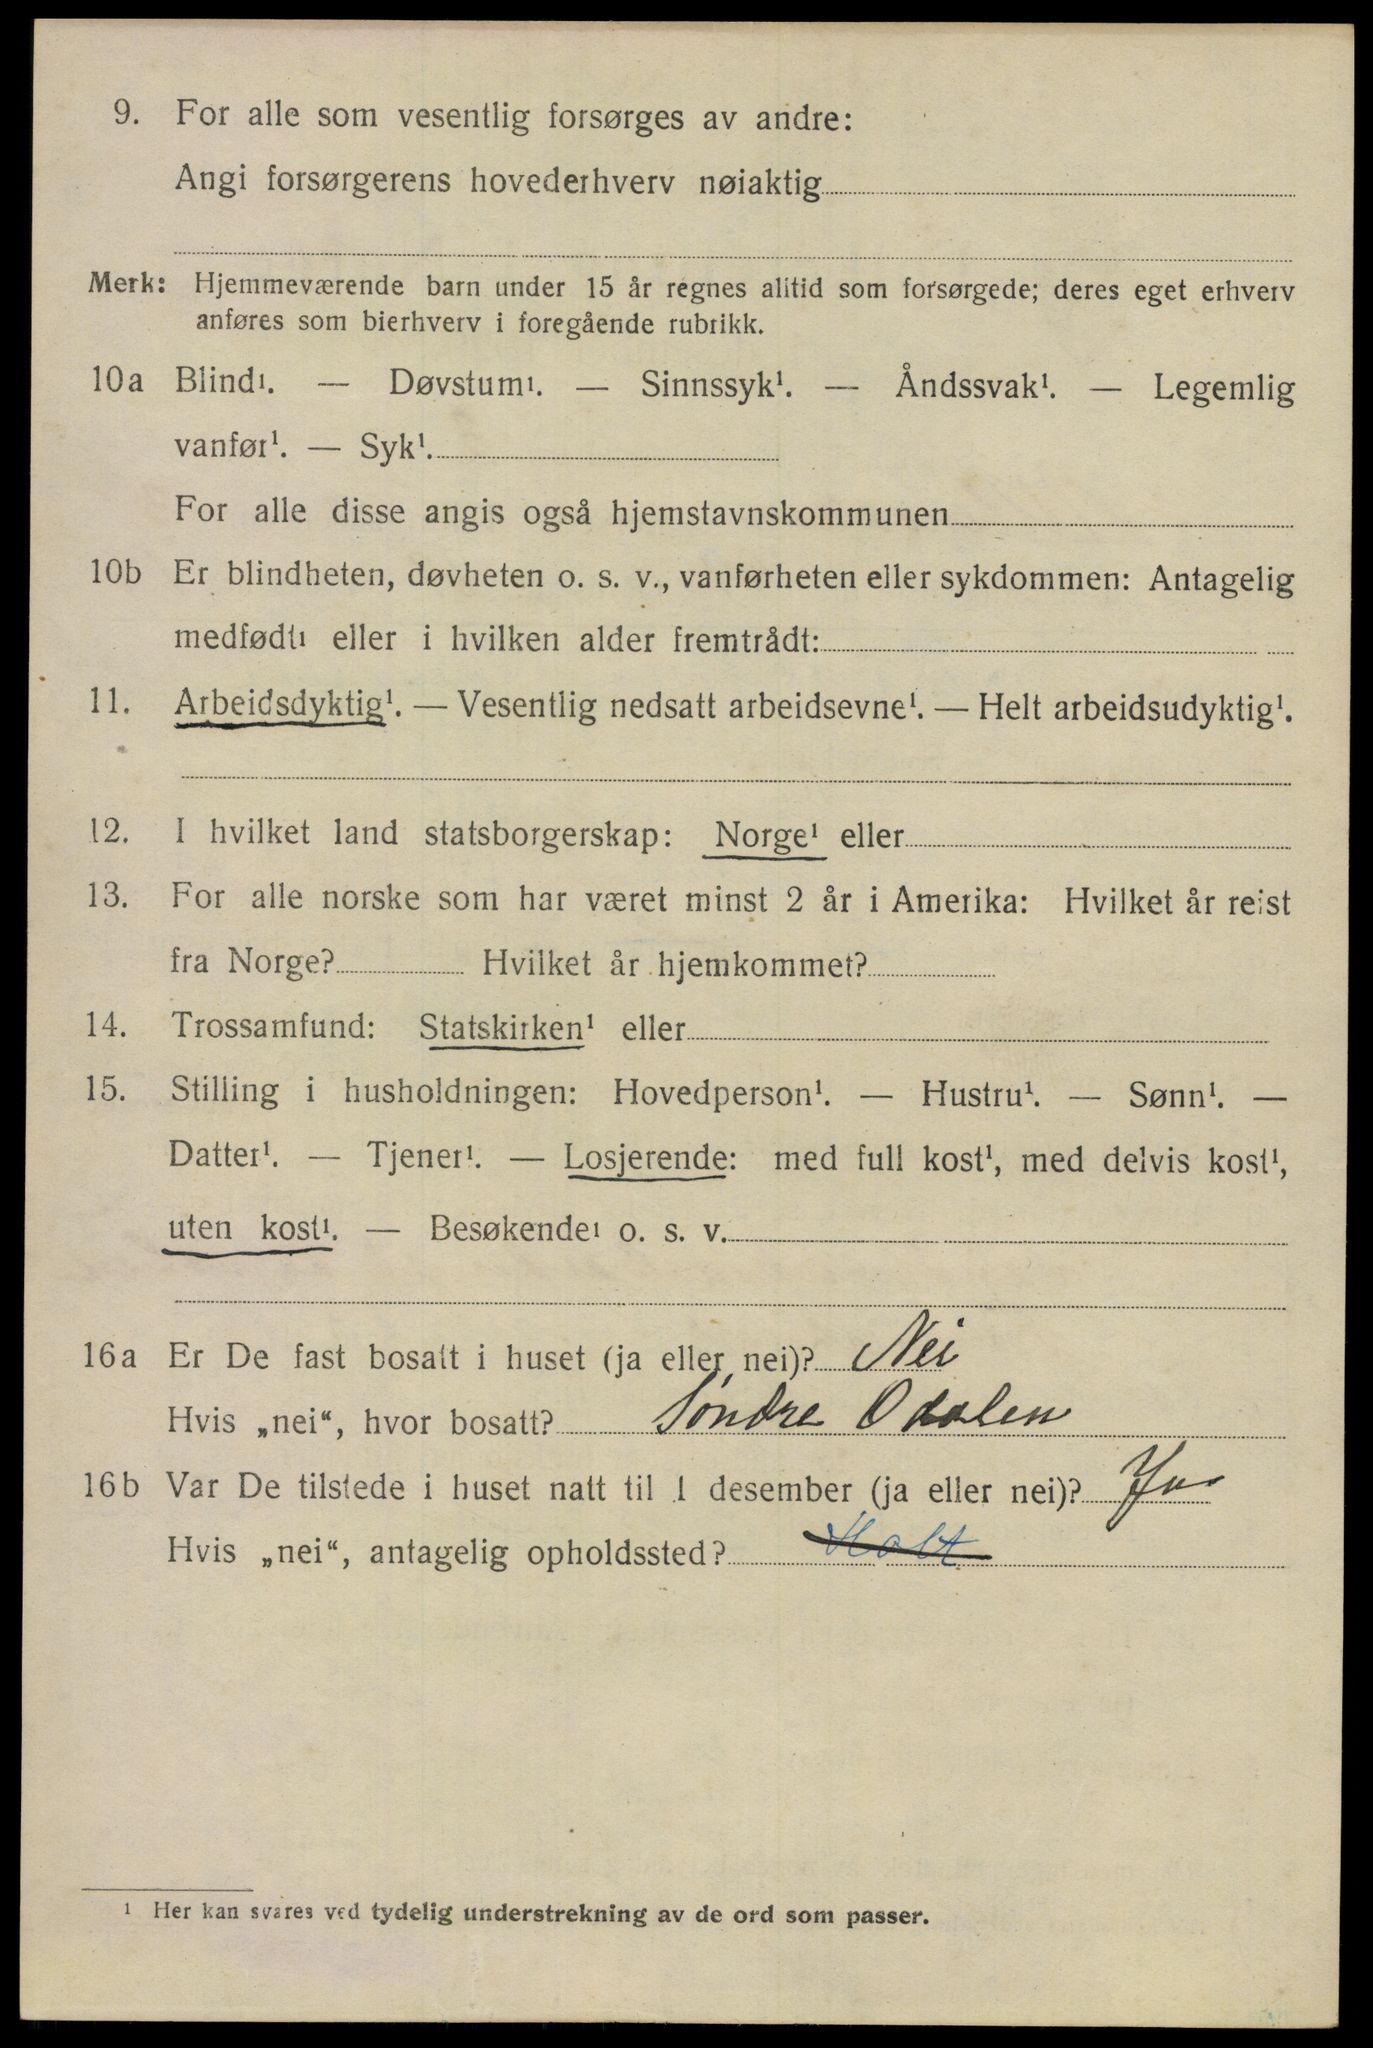 9. For alle som vesentlig forsørges av andre:
Angi forsørgerens hovederhverv nøiaktig
Merk: Hjemmeværende barn under 15 år regnes alltid som forsørgede; deres eget erhverv
anføres som bierhverv i foregående rubrikk.
10a Blind¹. — Døvstum¹. — Sinnssyk¹. — Åndssvak¹. — Legemlig
vanfør¹. — Syk¹.
For alle disse angis også hjemstavnskommunen
10b Er blindheten, døvheten o. s. v., vanførheten eller sykdommen: Antagelig
medfødt¹ eller i hvilken alder fremtrådt:
11. Arbeidsdyktig¹. — Vesentlig nedsatt arbeidsevne¹. — Helt arbeidsudyktig¹.
12. I hvilket land statsborgerskap: Norge¹ eller
13. For alle norske som har været minst 2 år i Amerika: Hvilket år reist
fra Norge? Hvilket år hjemkommet?
14. Trossamfund: Statskirken¹ eller
15. Stilling i husholdningen: Hovedperson¹. — Hustru¹. — Sønn¹. —
Datter¹. — Tjener¹. — Losjerende: med full kost¹, med delvis kost¹,
uten kost¹. — Besøkende¹ o. s. v.
16a Er De fast bosatt i huset (ja eller nei)? Nei
Hvis „nei“, hvor bosatt? Søndre Odalen
16b Var De tilstede i huset natt til 1 desember (ja eller nei)? Ja
Hvis „nei“, antagelig opholdssted? Holt
¹ Her kan svares ved tydelig understrekning av de ord som passer.